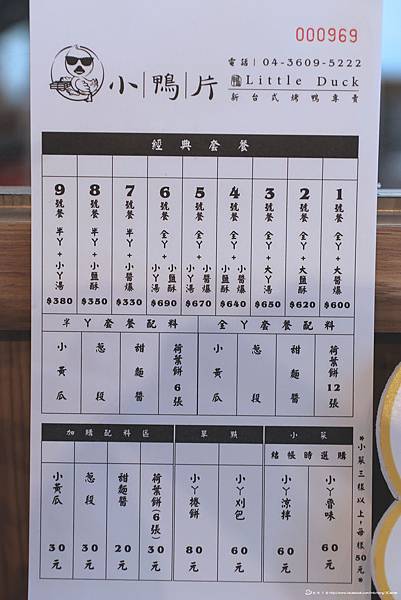 000969
小鴨片
電話 | 04-3609-5222
Little Duck
新台式烤鴨專賣
經典套餐
1 號餐 全丫+大醬爆 $600
2 號餐 全丫+大鹽酥 $620
3 號餐 全丫+大丫湯 $650
4 號餐 全丫+小醬爆 小鹽酥 $640
5 號餐 全丫+小醬爆 小丫湯 $670
6 號餐 全丫+小鹽酥 小丫湯 $690
7 號餐 半丫+小醬爆 $330
8 號餐 半丫+小鹽酥 $350
9 號餐 半丫+小丫湯 $380
半丫套餐配料
小黃瓜
蔥段
甜麵醬
荷葉餅6張
全丫套餐配料
小黃瓜
蔥段
甜麵醬
荷葉餅12張
加購配料區
小黃瓜 30元
蔥段 30元
甜麵醬 20元
荷葉餅(6張) 30元
單點
小丫捲餅 80元
小丫刈包 60元
小菜
結帳時選購
小丫涼拌 60元
小丫滷味 60元
*小菜三樣以上,每樣50元*